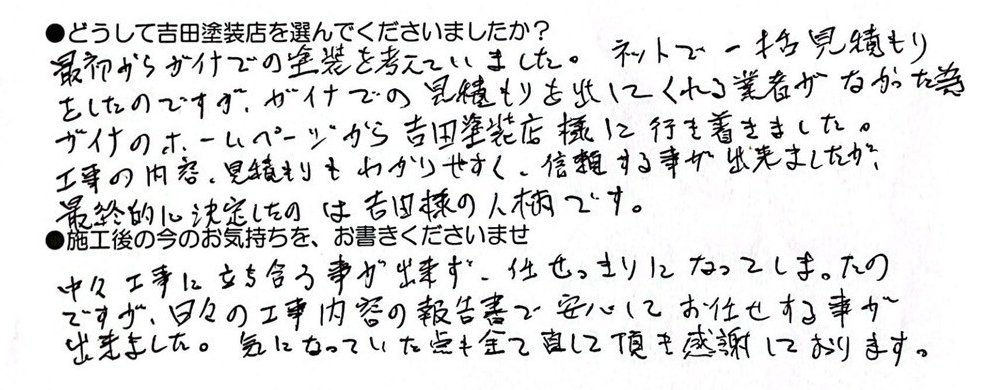 ●どうして吉田塗装店を選んでくださいましたか？
最初からガイナでの塗装を考えていました。ネットで一括見積もり
をしたのですが、ガイナでの見積もりを出してくれる業者がなかった為
ガイナのホームページから吉田塗装店様に行き着きました。
工事の内容、見積もりもわかりやすく、信頼する事が出来ましたが、
最終的に決定したのは吉田様の人柄です。
●施工後の今のお気持ちを、お書きくださいませ
中々工事に立ち合う事が出来ず、任せっきりになってしまったの
ですが、日々の工事内容の報告書で安心してお任せする事が
出来ました。気になっていた点も全て直して頂き感謝しております。